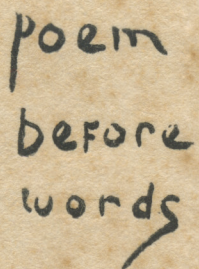 poem
before
words